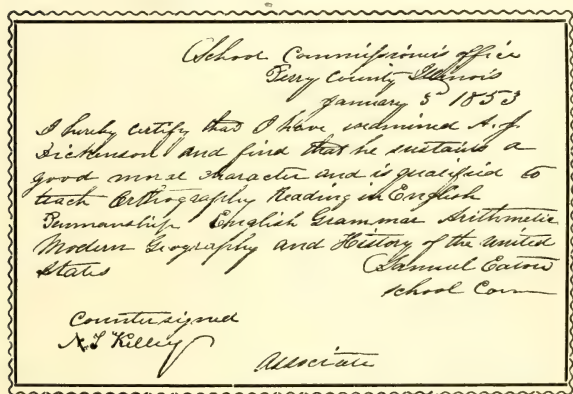 School Commissioner's office
Perry County Illinois
January 3d 1853
I hereby certify that I have examined A. J.
Dickenson and find that he sustains a
good moral character and is qualified to
teach Orthography Reading in English
Penmanship English Grammar Arithmetic
Modern Geography and History of the united
States Samuel Eaton
School Com
Countersigned
Associate